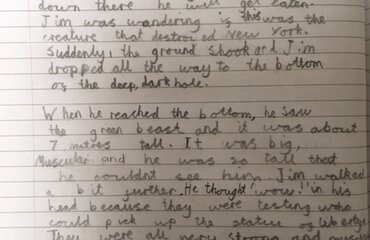 down there he will get eaten.
Jim was wandering is this was the
creature that destrored New York.
Suddenly, the ground shook and Jim
dropped all the way to the bottom
of the deep, dark hole.
When he reached the bottom, he saw
the green beast and it was about
7 metres tall. It was big,
Muscular and he was so tall that
he couldn't see him. Jim walked
a bit further. He thought 'wow!' in his
head because they were testing who
could pick up the statue of liberty.
They were all very strong and